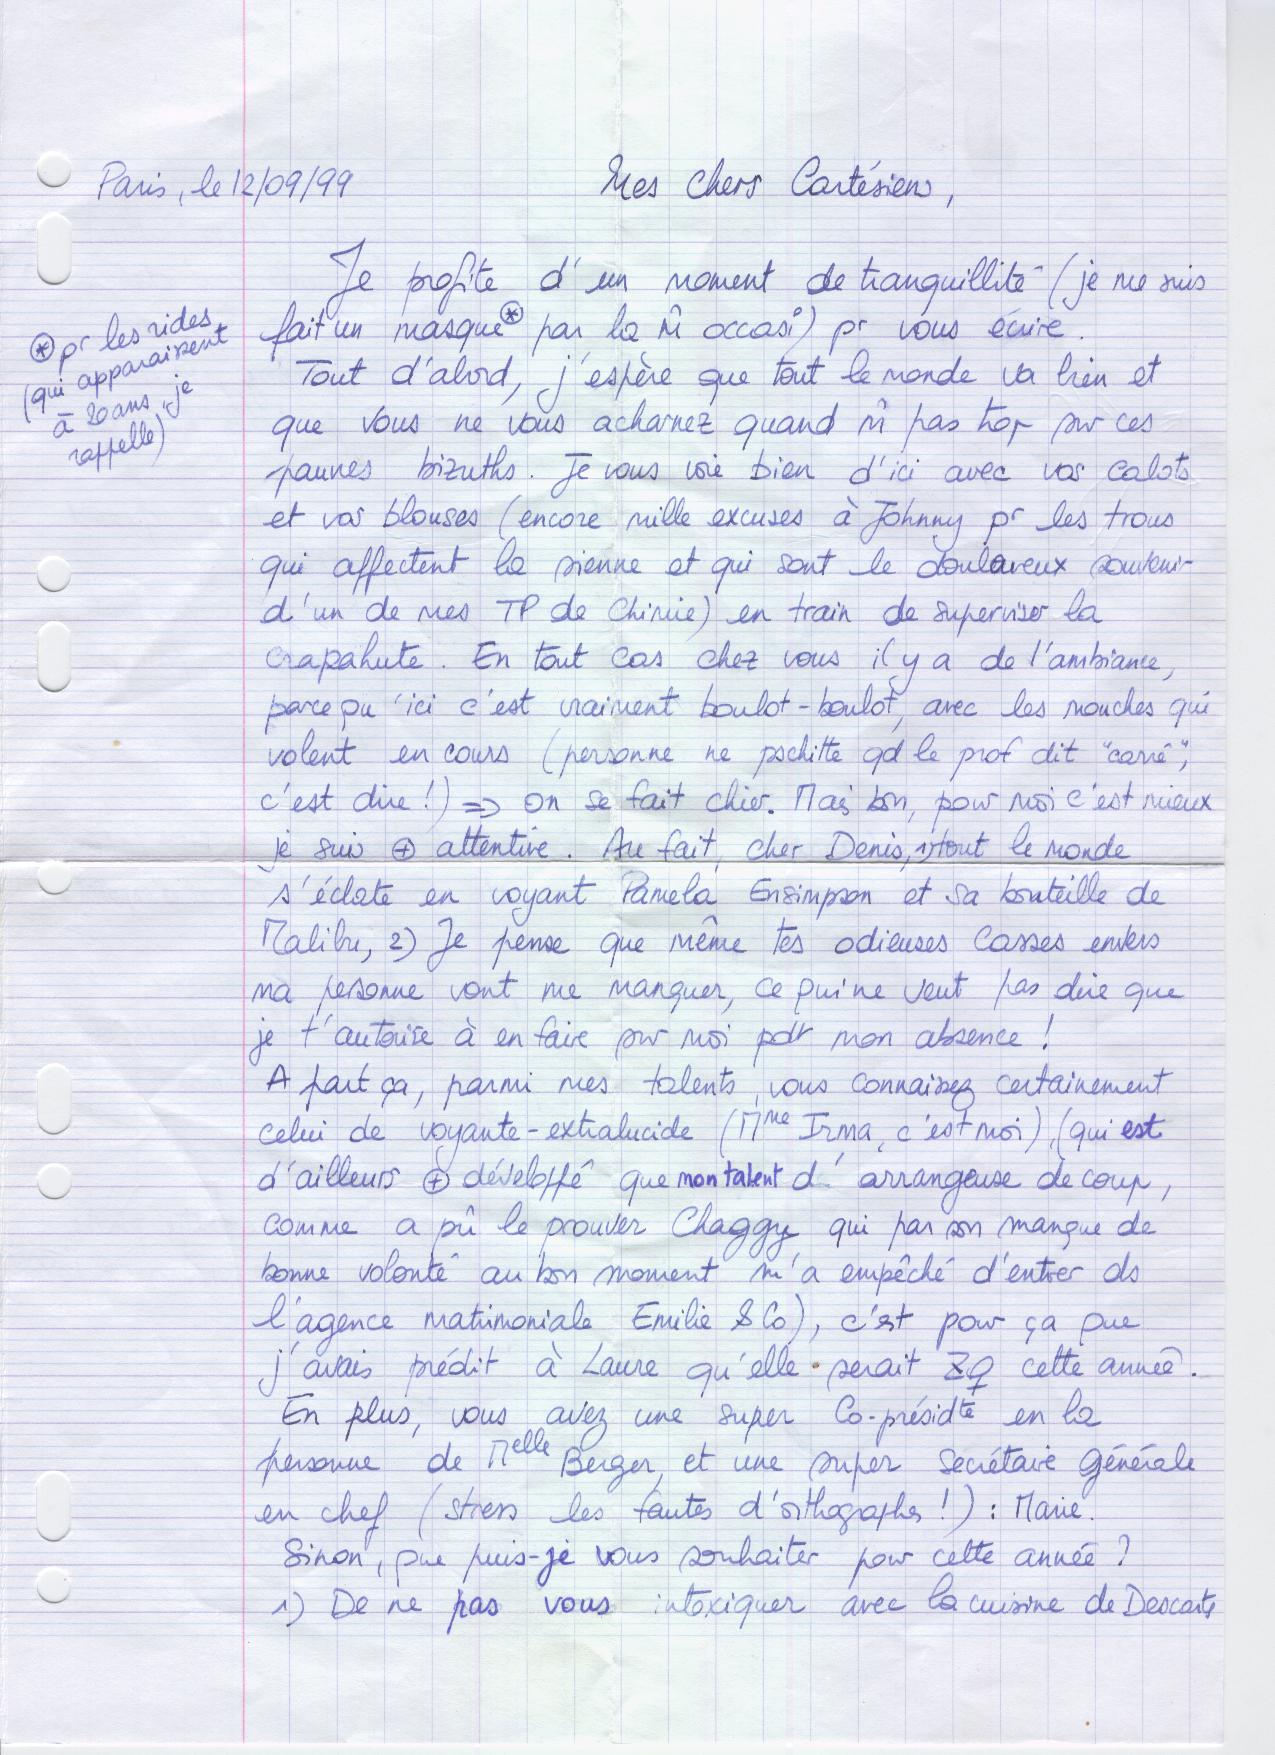 Paris, le 12/09/99
Mes chers Cartésiens,
Je profite d'un moment de tranquillité (je me suis
fait un masque⊛ par la m̂ occas°) pr vous écrire.
⊛ pr les rides
(qui apparaissent
à 20 ans, je
rappelle)
Tout d'abord, j'espère que tout le monde va bien et
que vous ne vous acharnez quand m̂ pas trop sur ces
pauvres bizuths. Je vous vois bien d'ici avec vos calots
et vos blouses (encore mille excuses à Johnny pr les trous
qui affectent la sienne et qui sont le douloureux souvenir
d'un de mes TP de Chimie) en train de superviser la
crapahute. En tout cas chez vous il y a de l'ambiance,
parce qu'ici c'est vraiment boulot-boulot, avec les mouches qui
volent en cours (personne ne pschitte qd le prof dit "carré",
c'est dire !) => on se fait chier. Mais bon, pour moi c'est mieux
je suis ⊕ attentive. Au fait, cher Denis, 1) tout le monde
s'éclate en voyant Pamela Ensimpson et sa bouteille de
Malibu, 2) Je pense que même tes odieuses Casses envers
ma personne vont me manquer, ce qui ne veut pas dire que
je t'autorise à en faire sur moi pdt mon absence !
A part ça, parmi mes talents, vous connaissez certainement
celui de voyante-extralucide (Mme Irma, c'est moi), (qui est
d'ailleurs ⊕ développé que mon talent d'arrangeuse de coup,
comme a pû le prouver Chaggy qui par son manque de
bonne volonté au bon moment m'a empêché d'entrer ds
l'agence matrimoniale Emilie & Co), c'est pour ça que
j'avais prédit à Laure qu'elle serait ZQ cette année.
En plus, vous avez une super Co-présidte en la
personne de Melle Berger, et une super Secrétaire Générale
en chef (stress les fautes d'orthographe !) : Marie.
Sinon, que puis-je vous souhaiter pour cette année ?
1) De ne pas vous intoxiquer avec la cuisine de Descartes